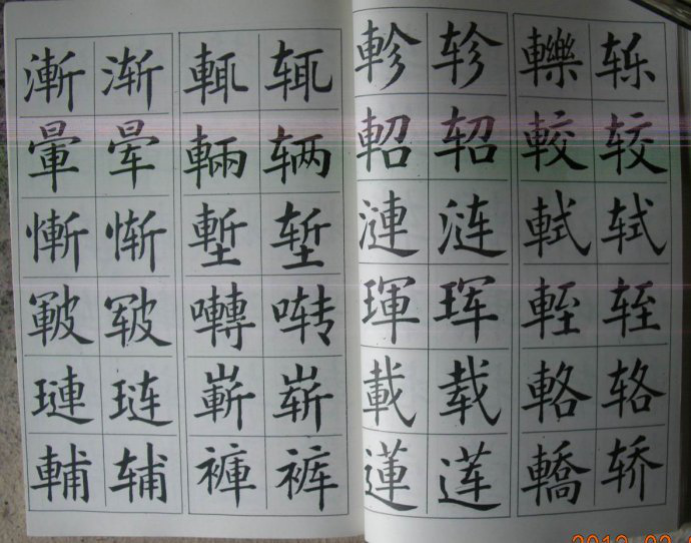 漸 渐 輒 辄 軫 轸 轢 轹
暈 晕 輛 辆 軺 轺 較 较
慚 惭 塹 堑 漣 涟 軾 轼
皸 皲 囀 啭 琿 珲 輊 轾
璉 琏 嶄 崭 載 载 輅 辂
輔 辅 褲 裤 蓮 莲 轎 轿